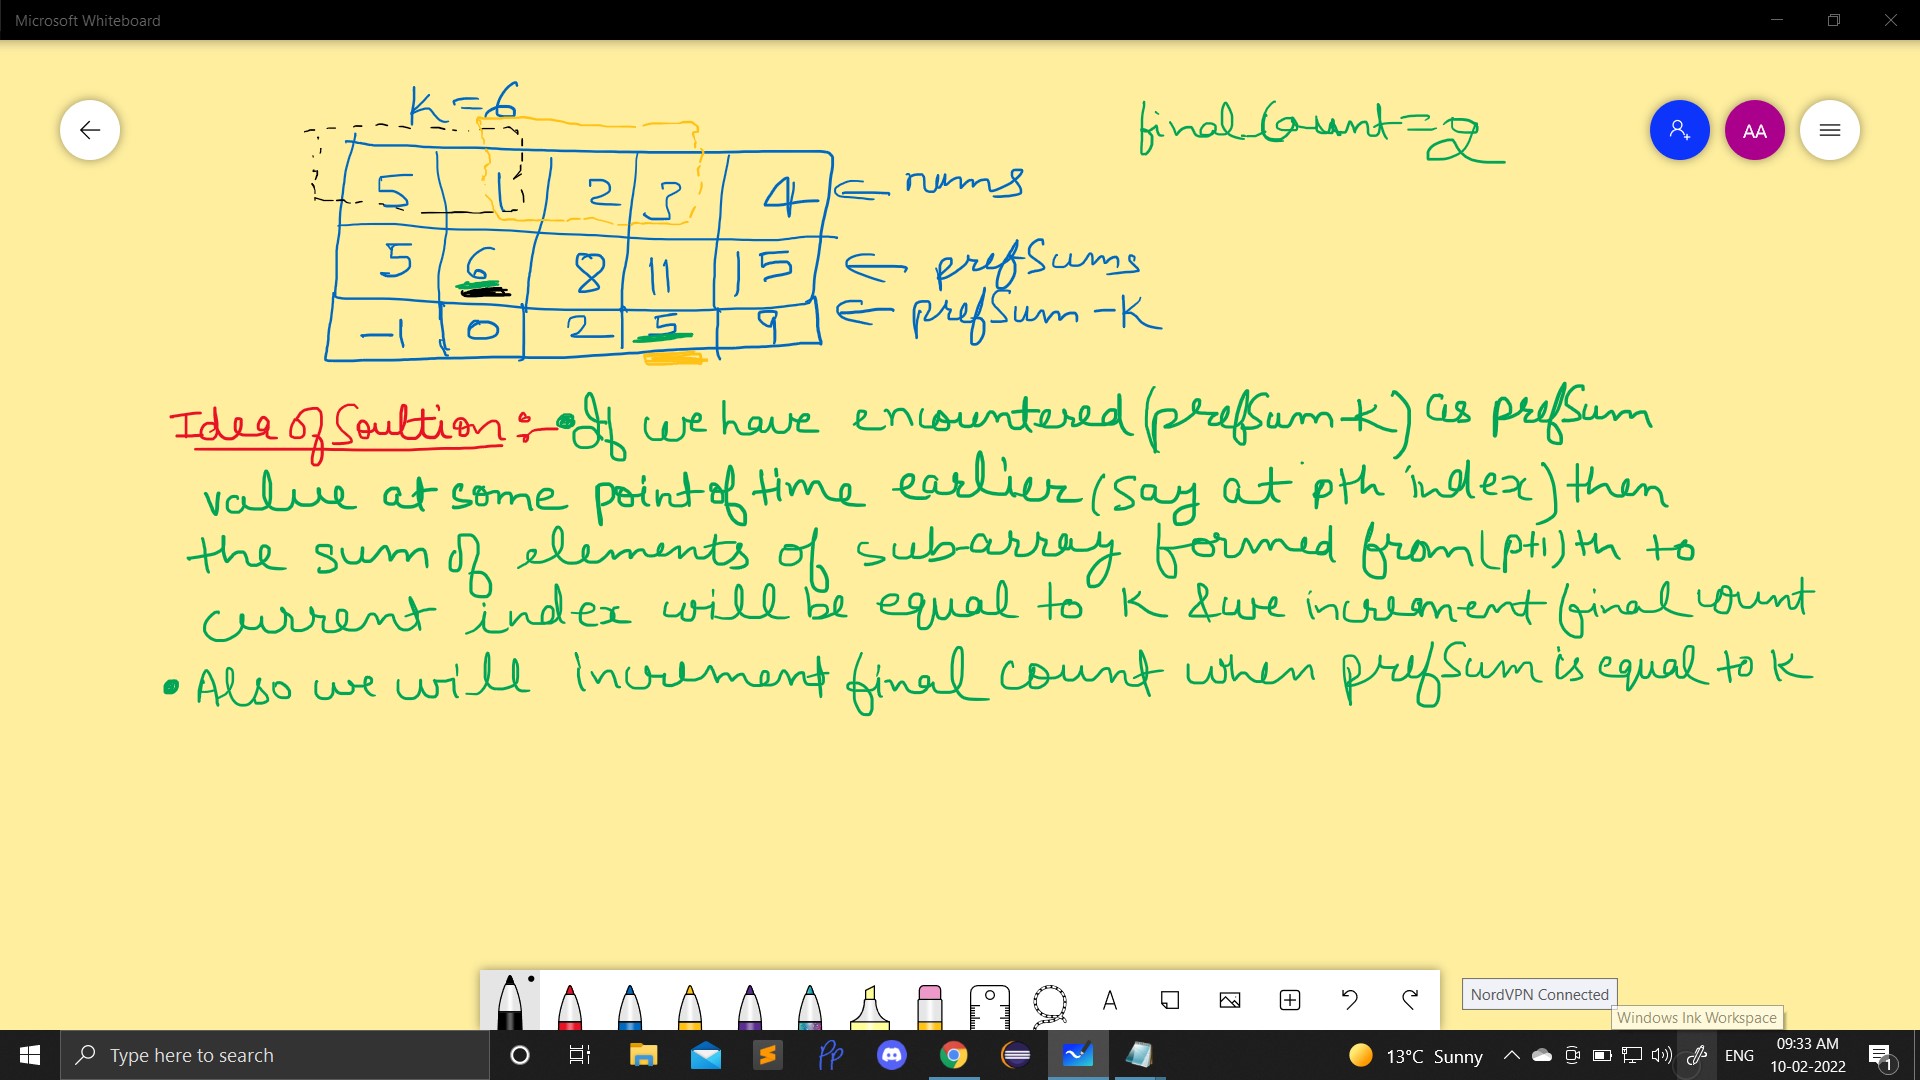 Microsoft Whiteboard
K = 6
final Count = 2
AA
5 1 2 3 4 ← nums
5 6 8 11 15 ← prefSums
-1 0 2 5 9 ← prefSum - K
Idea of Soultion :- • If we have encountered (prefSum-K) as prefSum
value at some point of time earlier (say at pth index) then
the sum of elements of subarray formed from (p+1)th to
current index will be equal to K & we increment final count
• Also we will increment final count when prefSum is equal to K
A
NordVPN Connected
Windows Ink Workspace
Type here to search
Pp
13°C Sunny
ENG
09:33 AM
10-02-2022
1